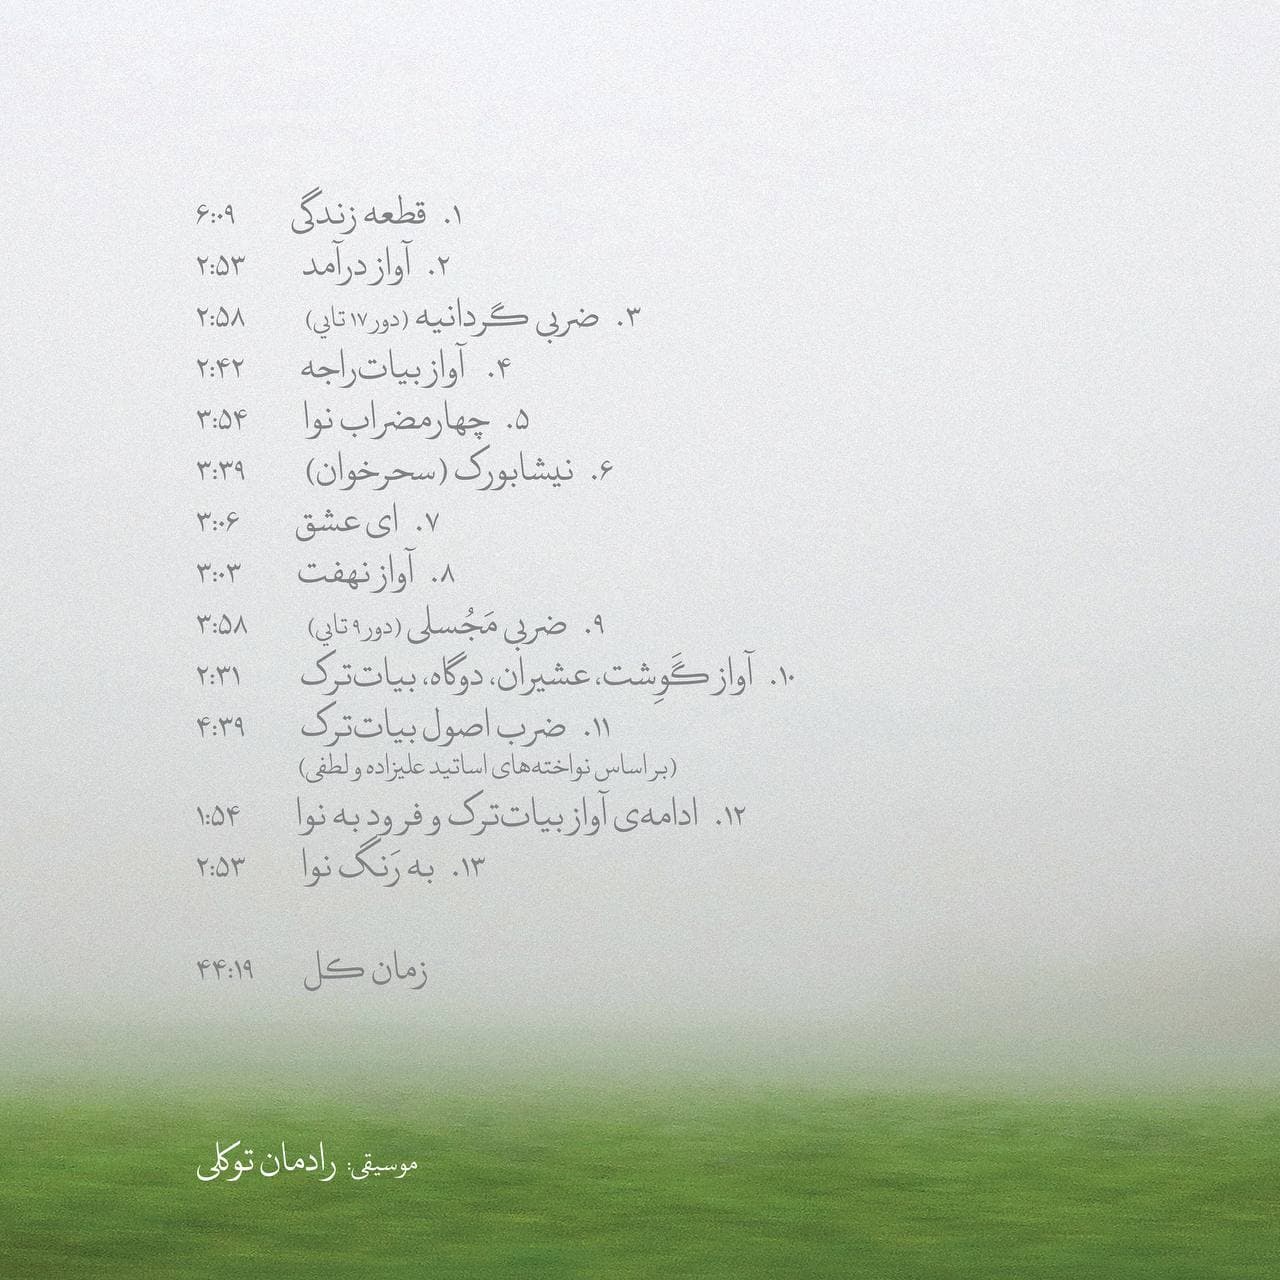 ۱. قطعه زندگی ۶:۰۹
۲. آواز درآمد ۲:۵۳
۳. ضربی گردانیه (دور ۱۷ تایی) ۲:۵۸
۴. آواز بیات‌راجه ۲:۴۲
۵. چهارمضراب نوا ۳:۵۴
۶. نیشابورک (سحرخوان) ۳:۳۹
۷. ای عشق ۳:۰۶
۸. آواز نهفت ۳:۰۳
۹. ضربی مَجُسلی (دور ۹ تایی) ۳:۵۸
۱۰. آواز گَوِشت، عشیران، دوگاه، بیات‌ترک ۲:۳۱
۱۱. ضرب اصول بیات‌ترک ۴:۳۹
(بر اساس نواخته‌های اساتید علیزاده و لطفی)
۱۲. ادامه‌ی آواز بیات‌ترک و فرود به نوا ۱:۵۴
۱۳. به رَنگ نوا ۲:۵۳
زمان کل ۴۴:۱۹
موسیقی: رادمان توکلی